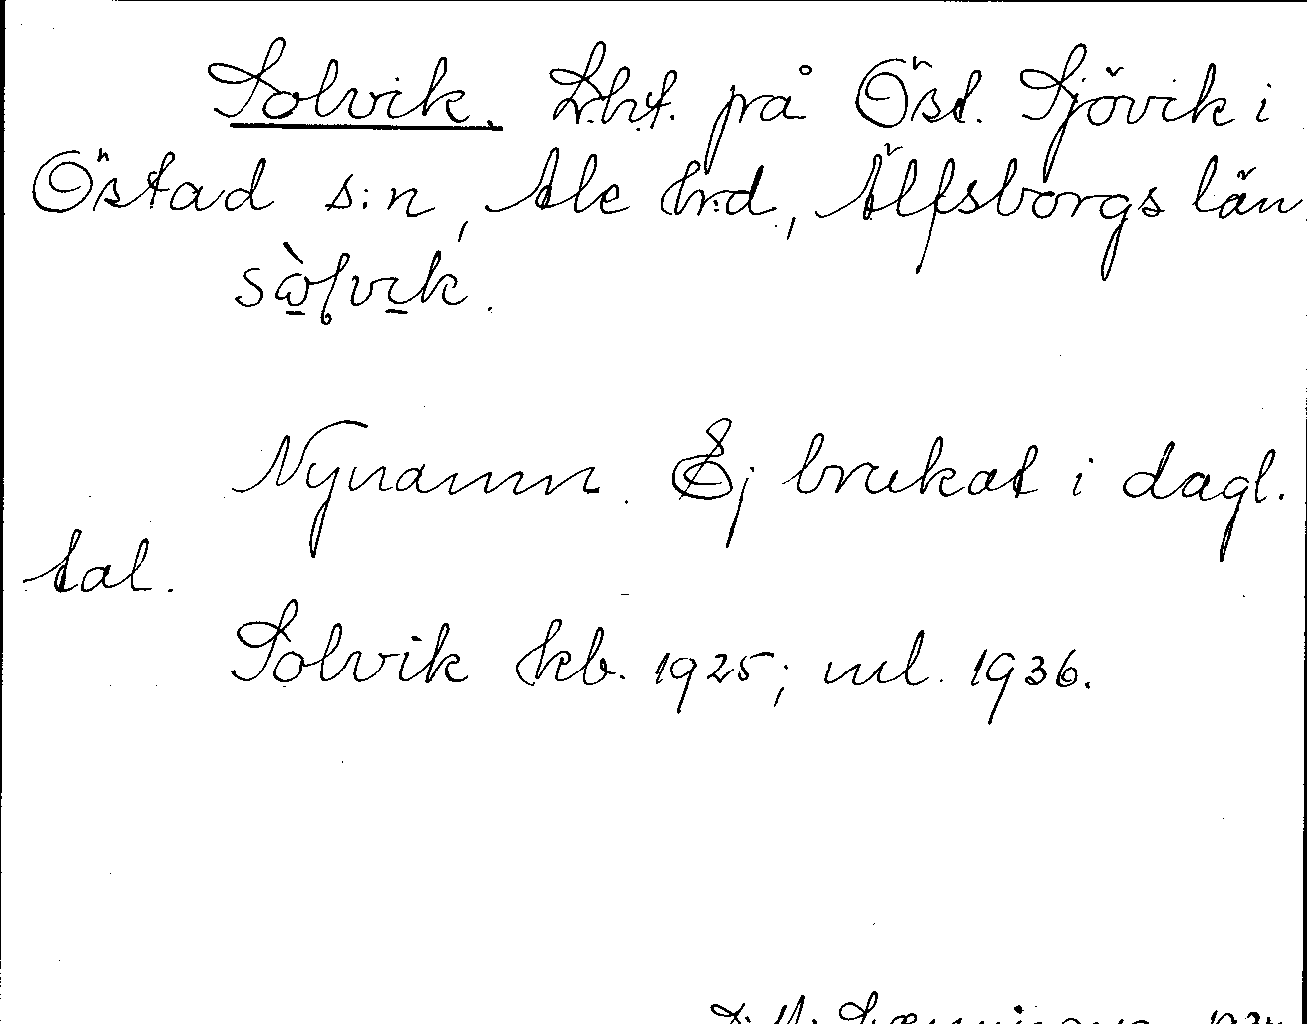 Solvik. Lht. på Öst. Sjövik i
Östad s:n, Ale hrd, Älfsborgs län.
Nynamn. Ej brukat i dagl.
tal.
Solvik kb. 1925; ml. 1936.